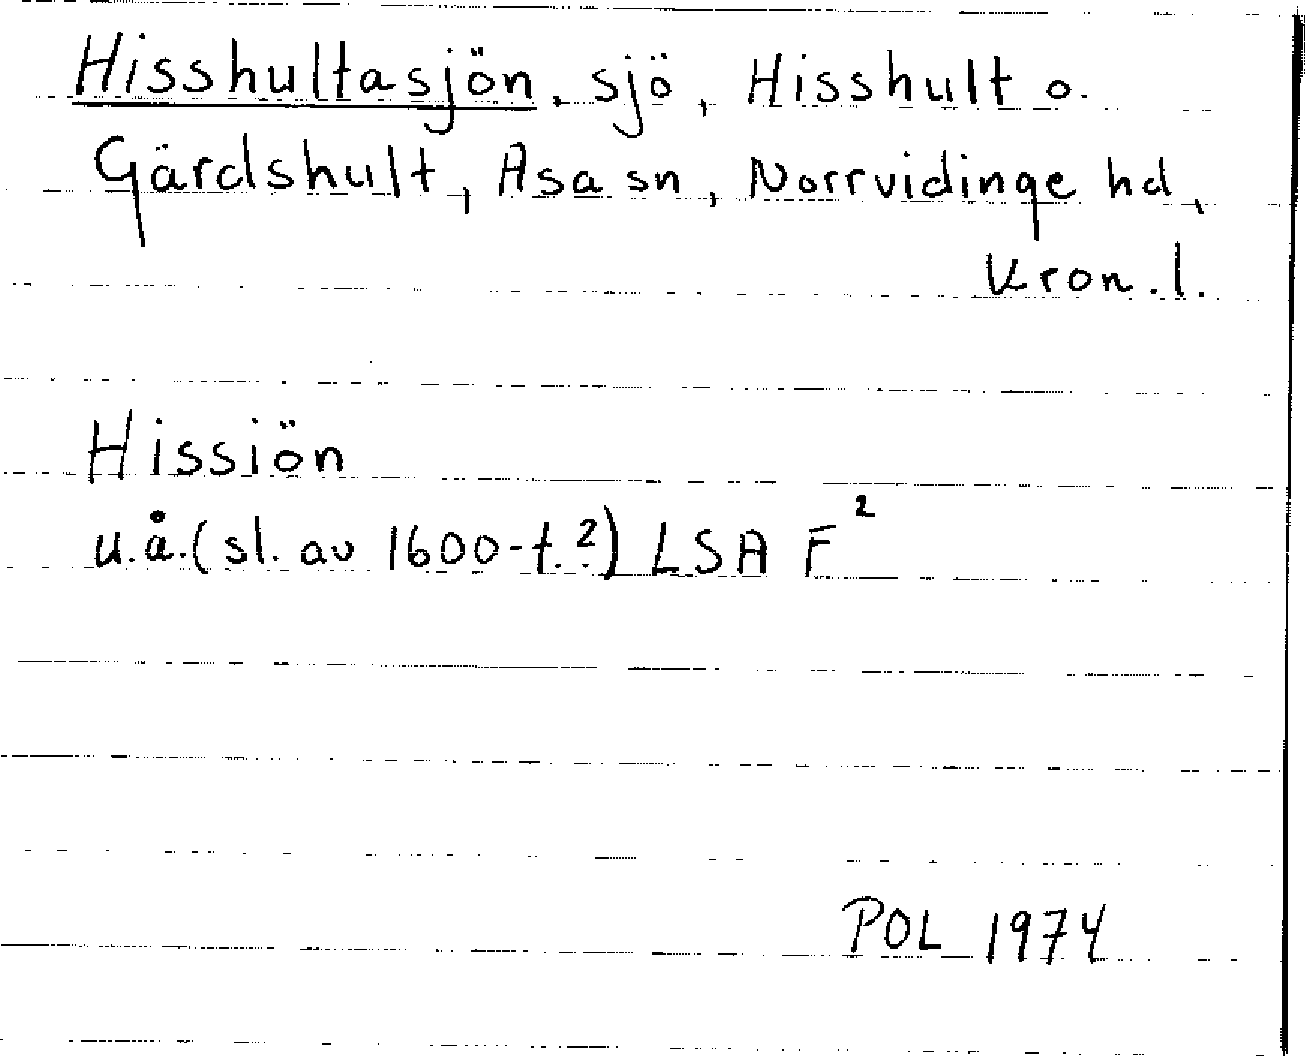 Hisshultasjön, sjö, Hisshult o.
Gärdshult, Asa sn, Norrvidinge hd,
Kron. l.
Hissiön
u.å. (sl. av 1600-t.?) LSA F²
POL 1974